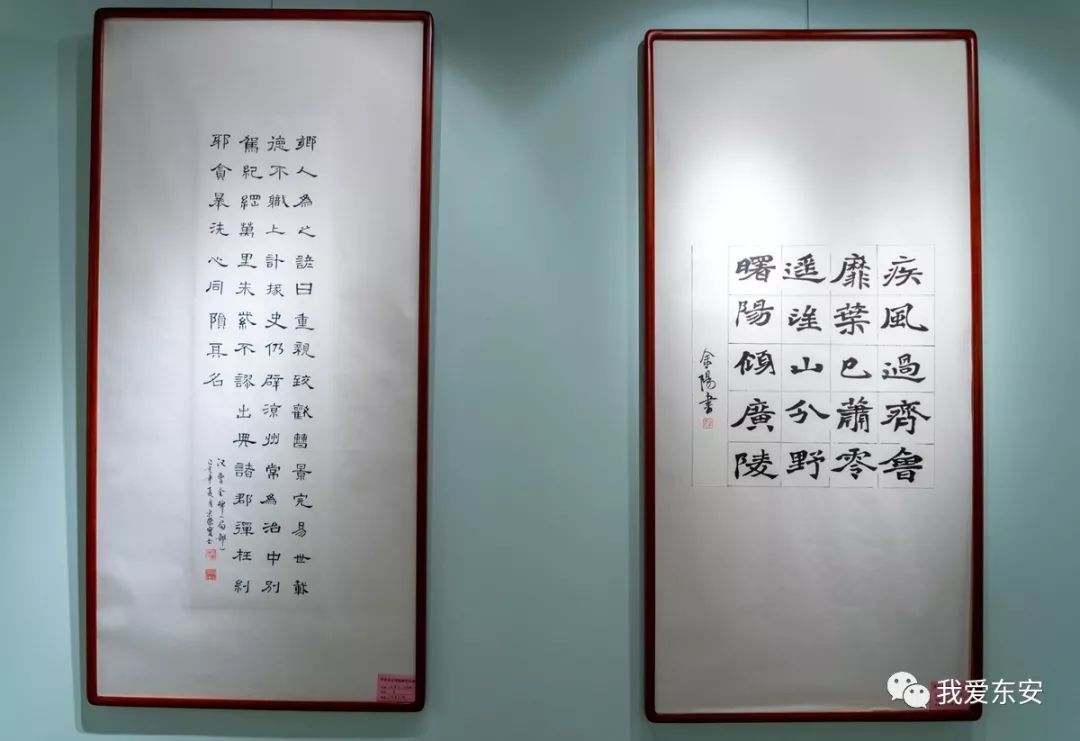 鄉人為之諺曰重親致歡曹景完易世載
德不職上計掾史仍辟涼州常為治中別
駕紀綱萬里朱紫不謬出典諸郡彈枉糾
耶貪暴洗心同隕其名
汉曹全碑（局部）
疾風過齊魯
靡葉已蕭零
遥望山分野
曙陽傾廣陵
余陽書
我爱东安